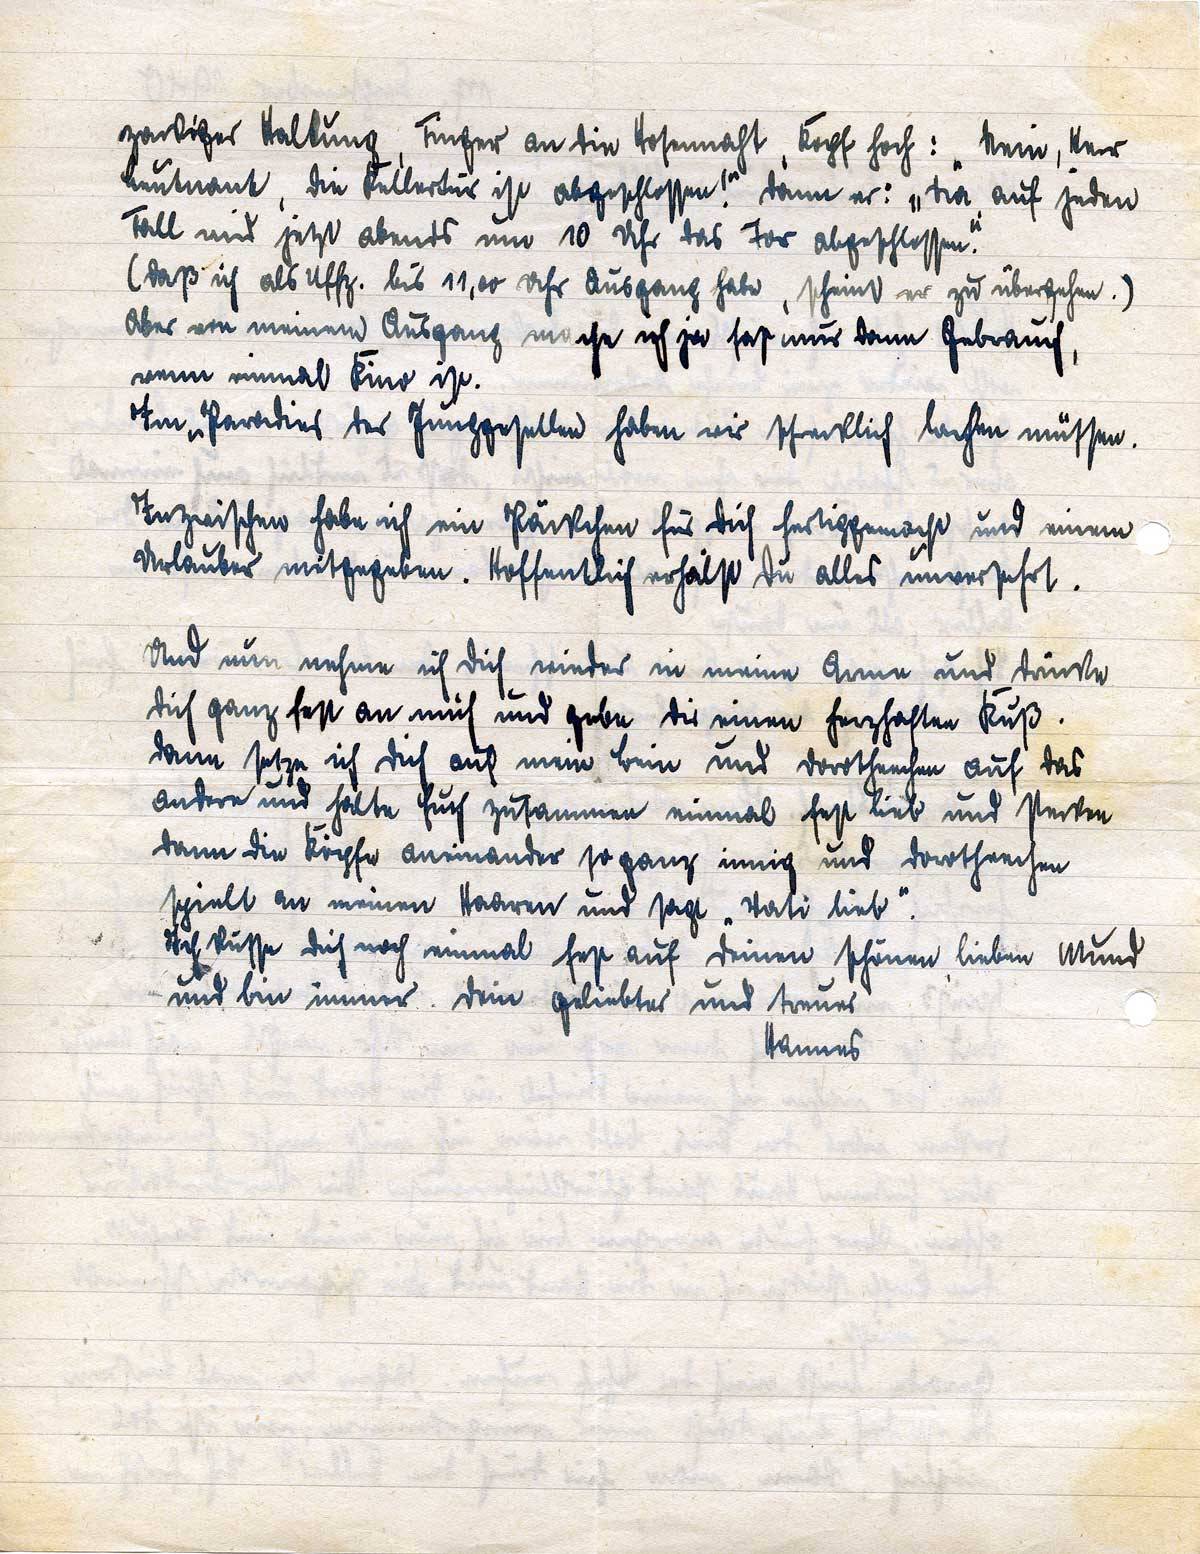 zackiger Haltung, Finger an die Hosennaht, Kopf hoch: „Nein, Herr
Leutnant, die Kellertür ist abgeschlossen!" Dann er: „Na, auf jeden
Fall wird jetzt abends um 10 Uhr das Tor abgeschlossen."
(Daß ich als Uffz. bis 11,00 Uhr Ausgang habe, scheint er zu übersehen.)
Aber von meinem Ausgang mache ich ja fast nur dann Gebrauch,
wenn einmal Kino ist.
Im „Paradies der Junggesellen haben wir schrecklich lachen müssen.
Inzwischen habe ich ein Päckchen für Dich fertiggemacht und einem
Urlauber mitgegeben. Hoffentlich erhälst Du alles unversehrt.
Und nun nehme ich Dich wieder in meine Arme und drücke
Dich ganz fest an mich und gebe Dir einen herzhaften Kuß.
Dann setze ich Dich auf mein Bein und Dorotheechen auf das
andere und halte Euch zusammen einmal fest lieb und stecken
dann die Köpfe aneinander so ganz innig und Dorotheechen
spielt an meinen Haaren und sagt „Vati lieb".
Ich küsse Dich noch einmal fest auf Deinen schönen, lieben Mund
und bin immer. Dein geliebter und treuer
Hannes